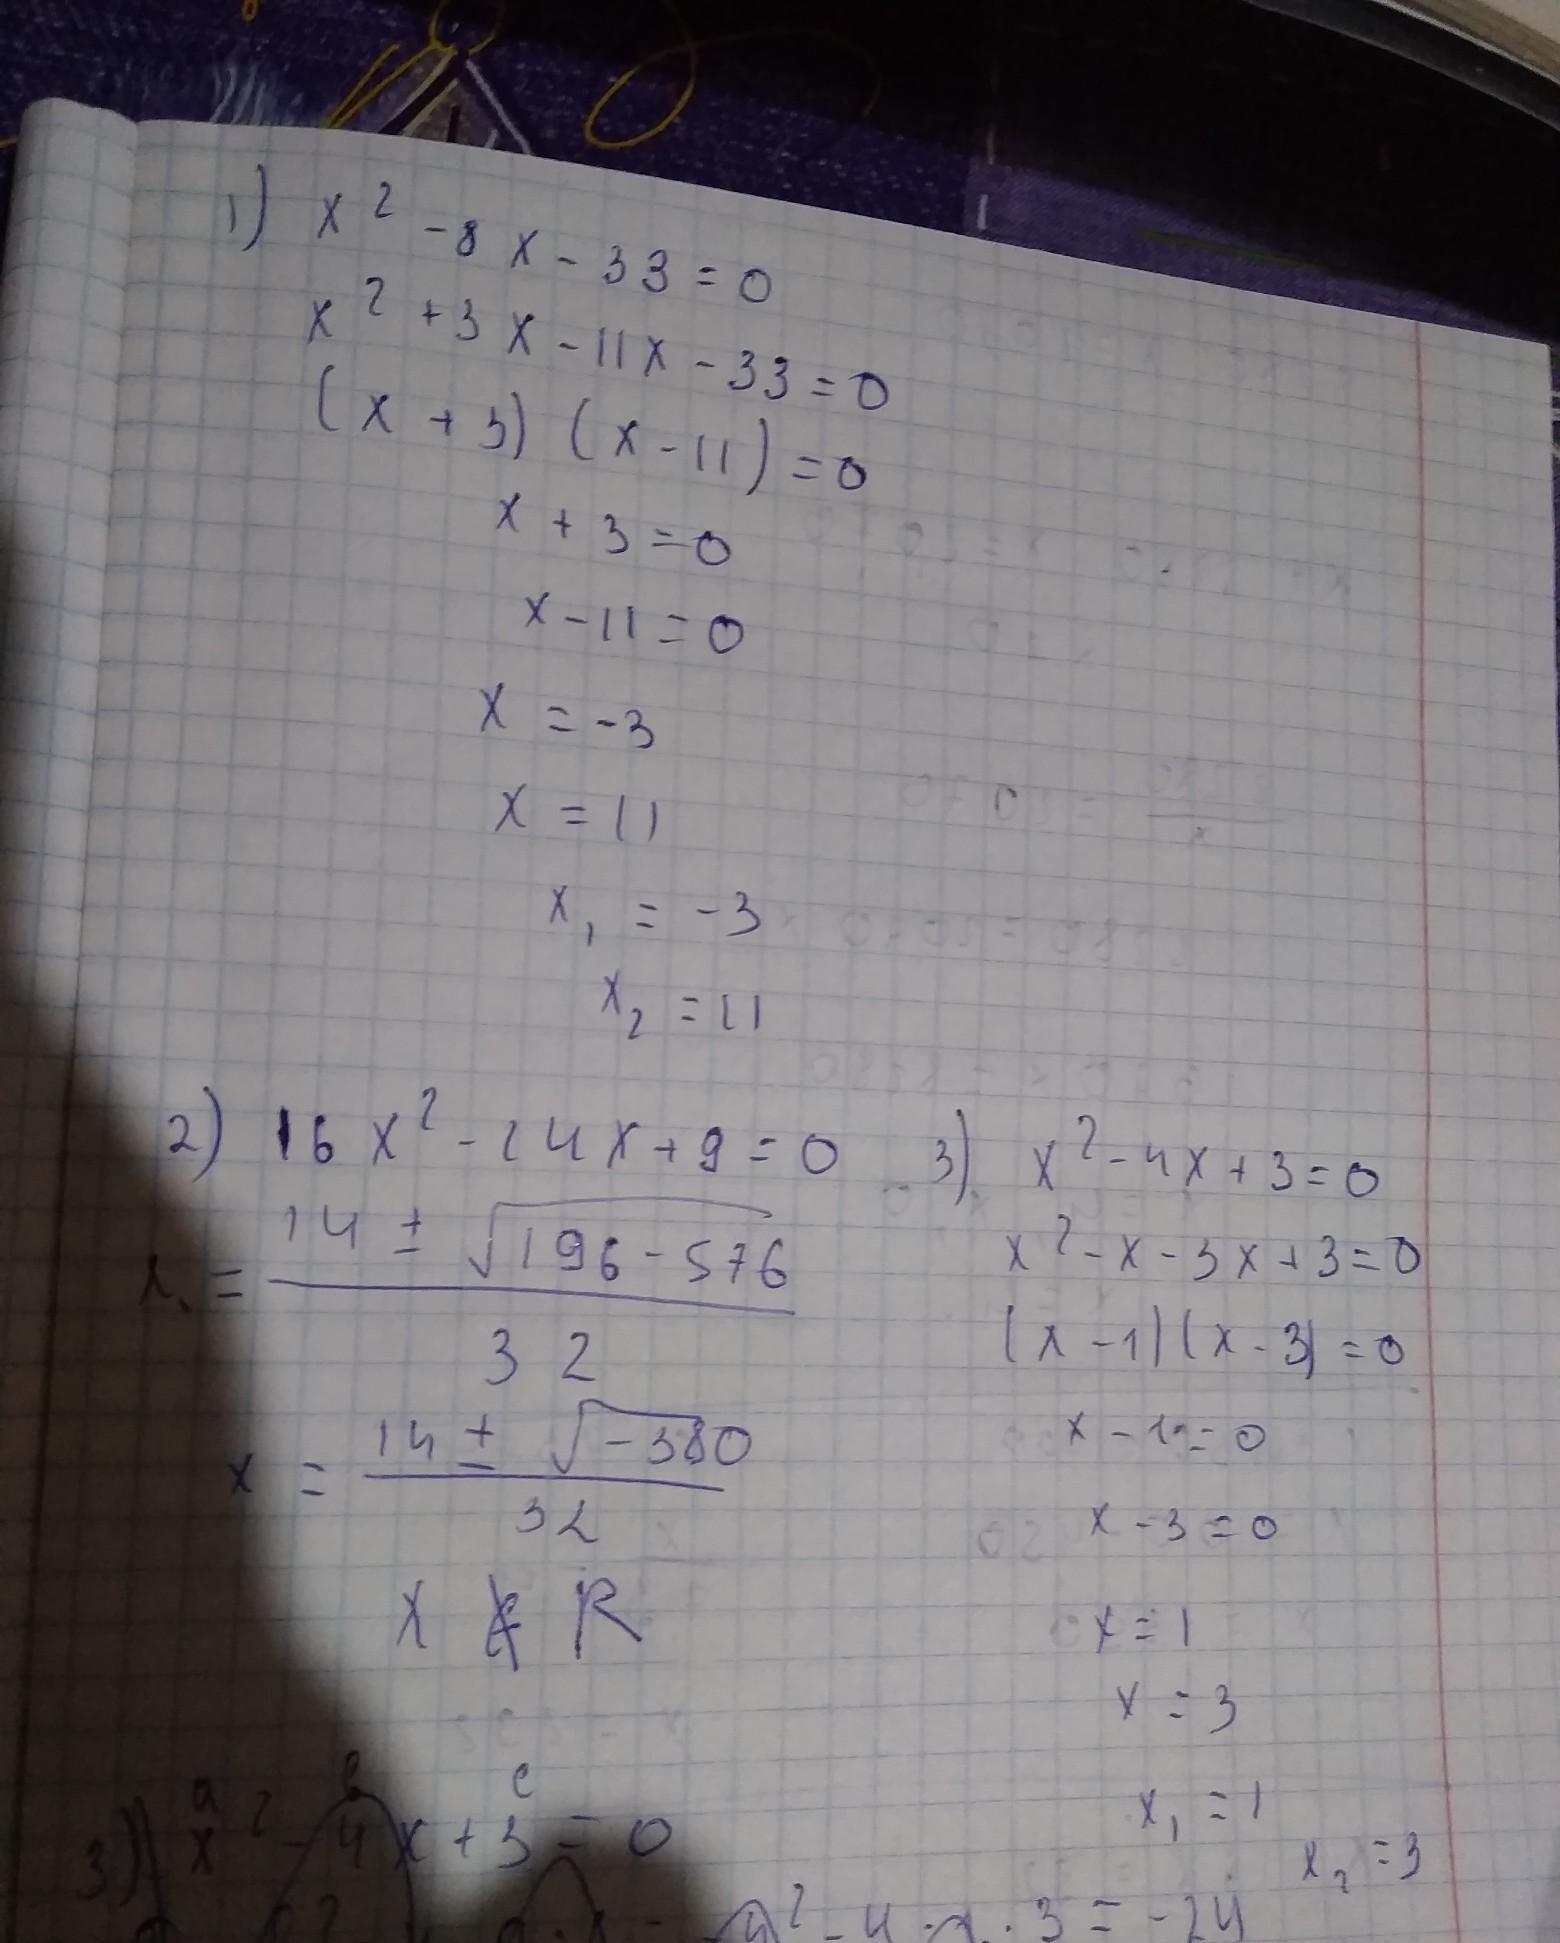 1) x² - 8x - 33 = 0
x² + 3x - 11x - 33 = 0
(x + 3) (x - 11) = 0
x + 3 = 0
x - 11 = 0
x = -3
x = 11
x₁ = -3
x₂ = 11
2) 16x² - 14x + 9 = 0
x = (14 ± √(196 - 576)) / 32
x = (14 ± √(-380)) / 32
x ∉ R
3) x² - 4x + 3 = 0
x² - x - 3x + 3 = 0
(x - 1) (x - 3) = 0
x - 1 = 0
x - 3 = 0
x = 1
x = 3
x₁ = 1
x₂ = 3
a в c
3) x² - 4x + 3 = 0
4² - 4 · 3 = -24